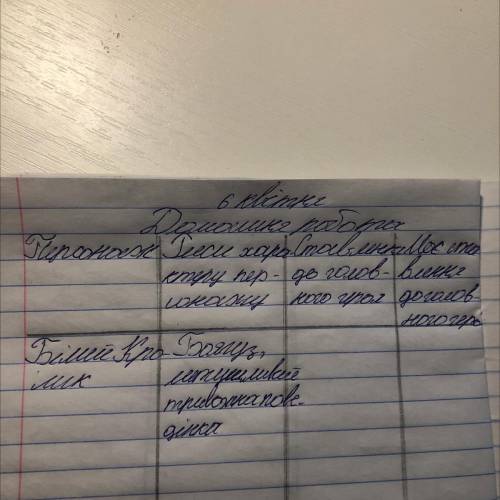 6 квітня
Домашня робота
Персонаж
Риси хара
ктеру пер-
сонажу
Ставлення
до голов-
ного героя
Моє ста
влення
до голов-
ного геро
Білий Кро-
лик
Боягуз,
метушливий
тривожна пове-
дінка